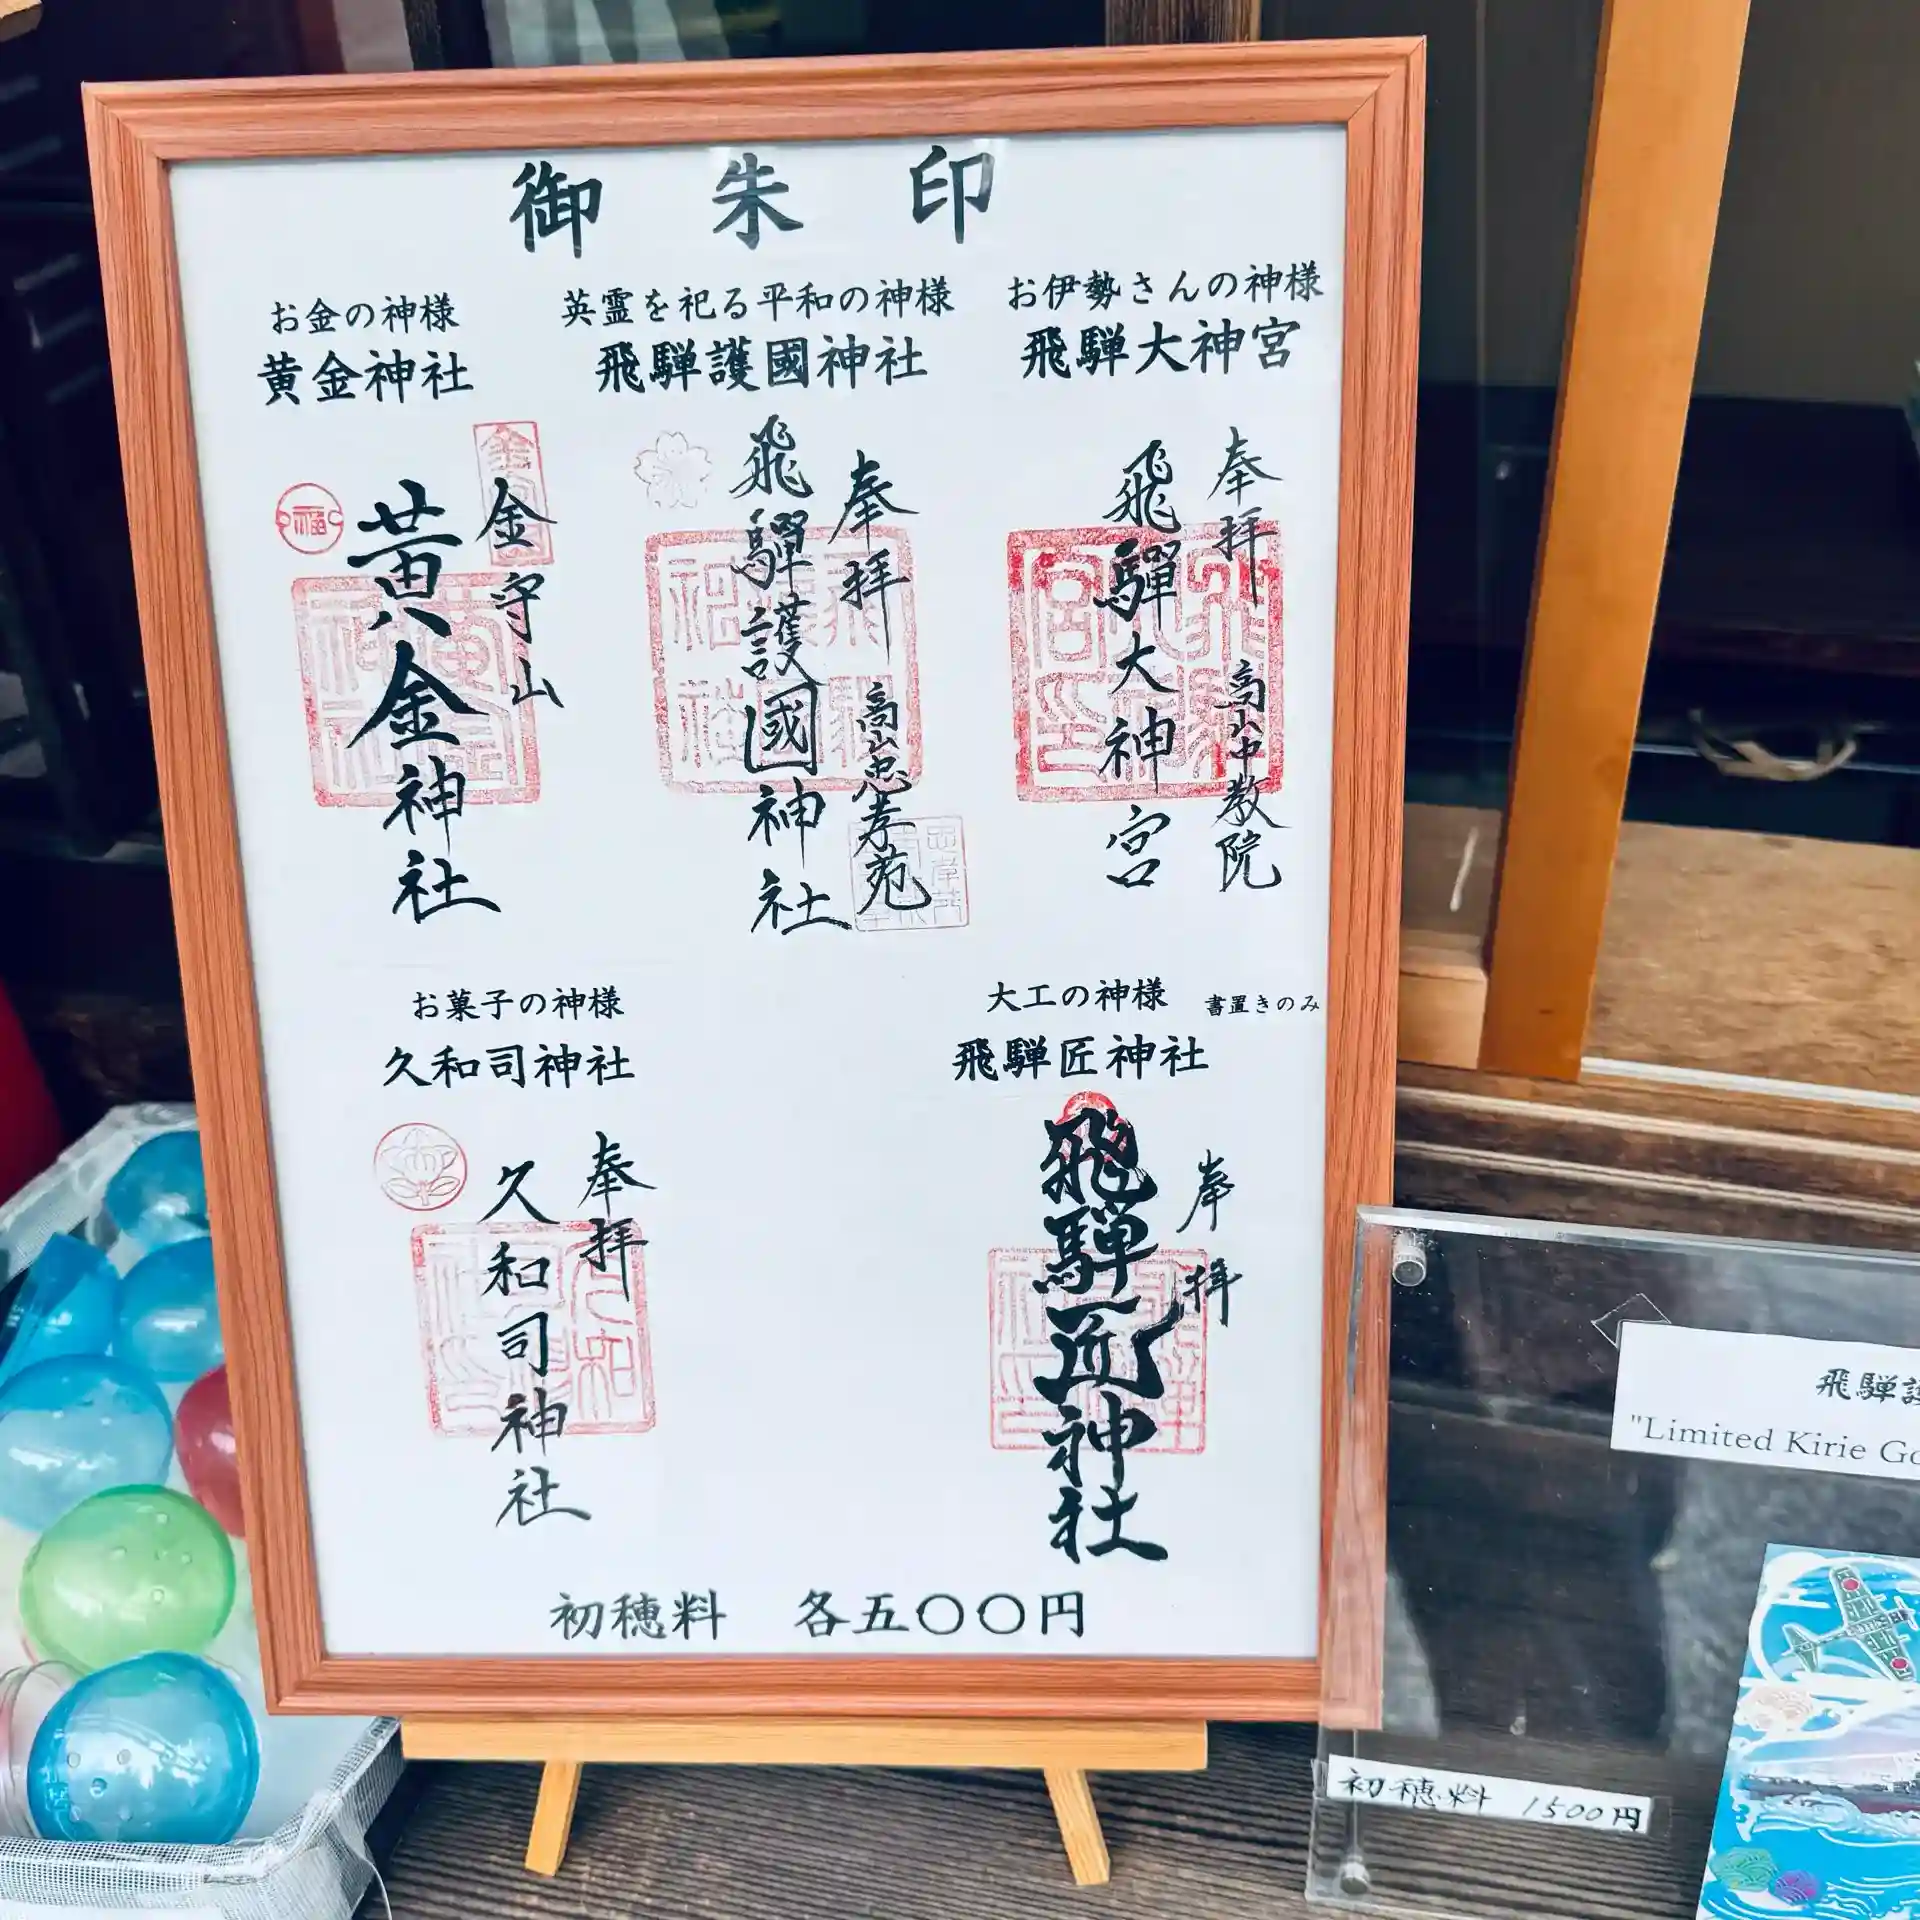 御朱印
お金の神様
黄金神社
英霊を祀る平和の神様
飛騨護國神社
お伊勢さんの神様
飛騨大神宮
金守山
黄金神社
奉拝 高山忠孝苑
飛騨護國神社
奉拝 高山中教院
飛騨大神宮
お菓子の神様
久和司神社
大工の神様 書置きのみ
飛騨匠神社
奉拝
久和司神社
奉拝
飛騨匠神社
初穂料 各五〇〇円
飛騨護
"Limited Kirie Go
初穂料 1500円